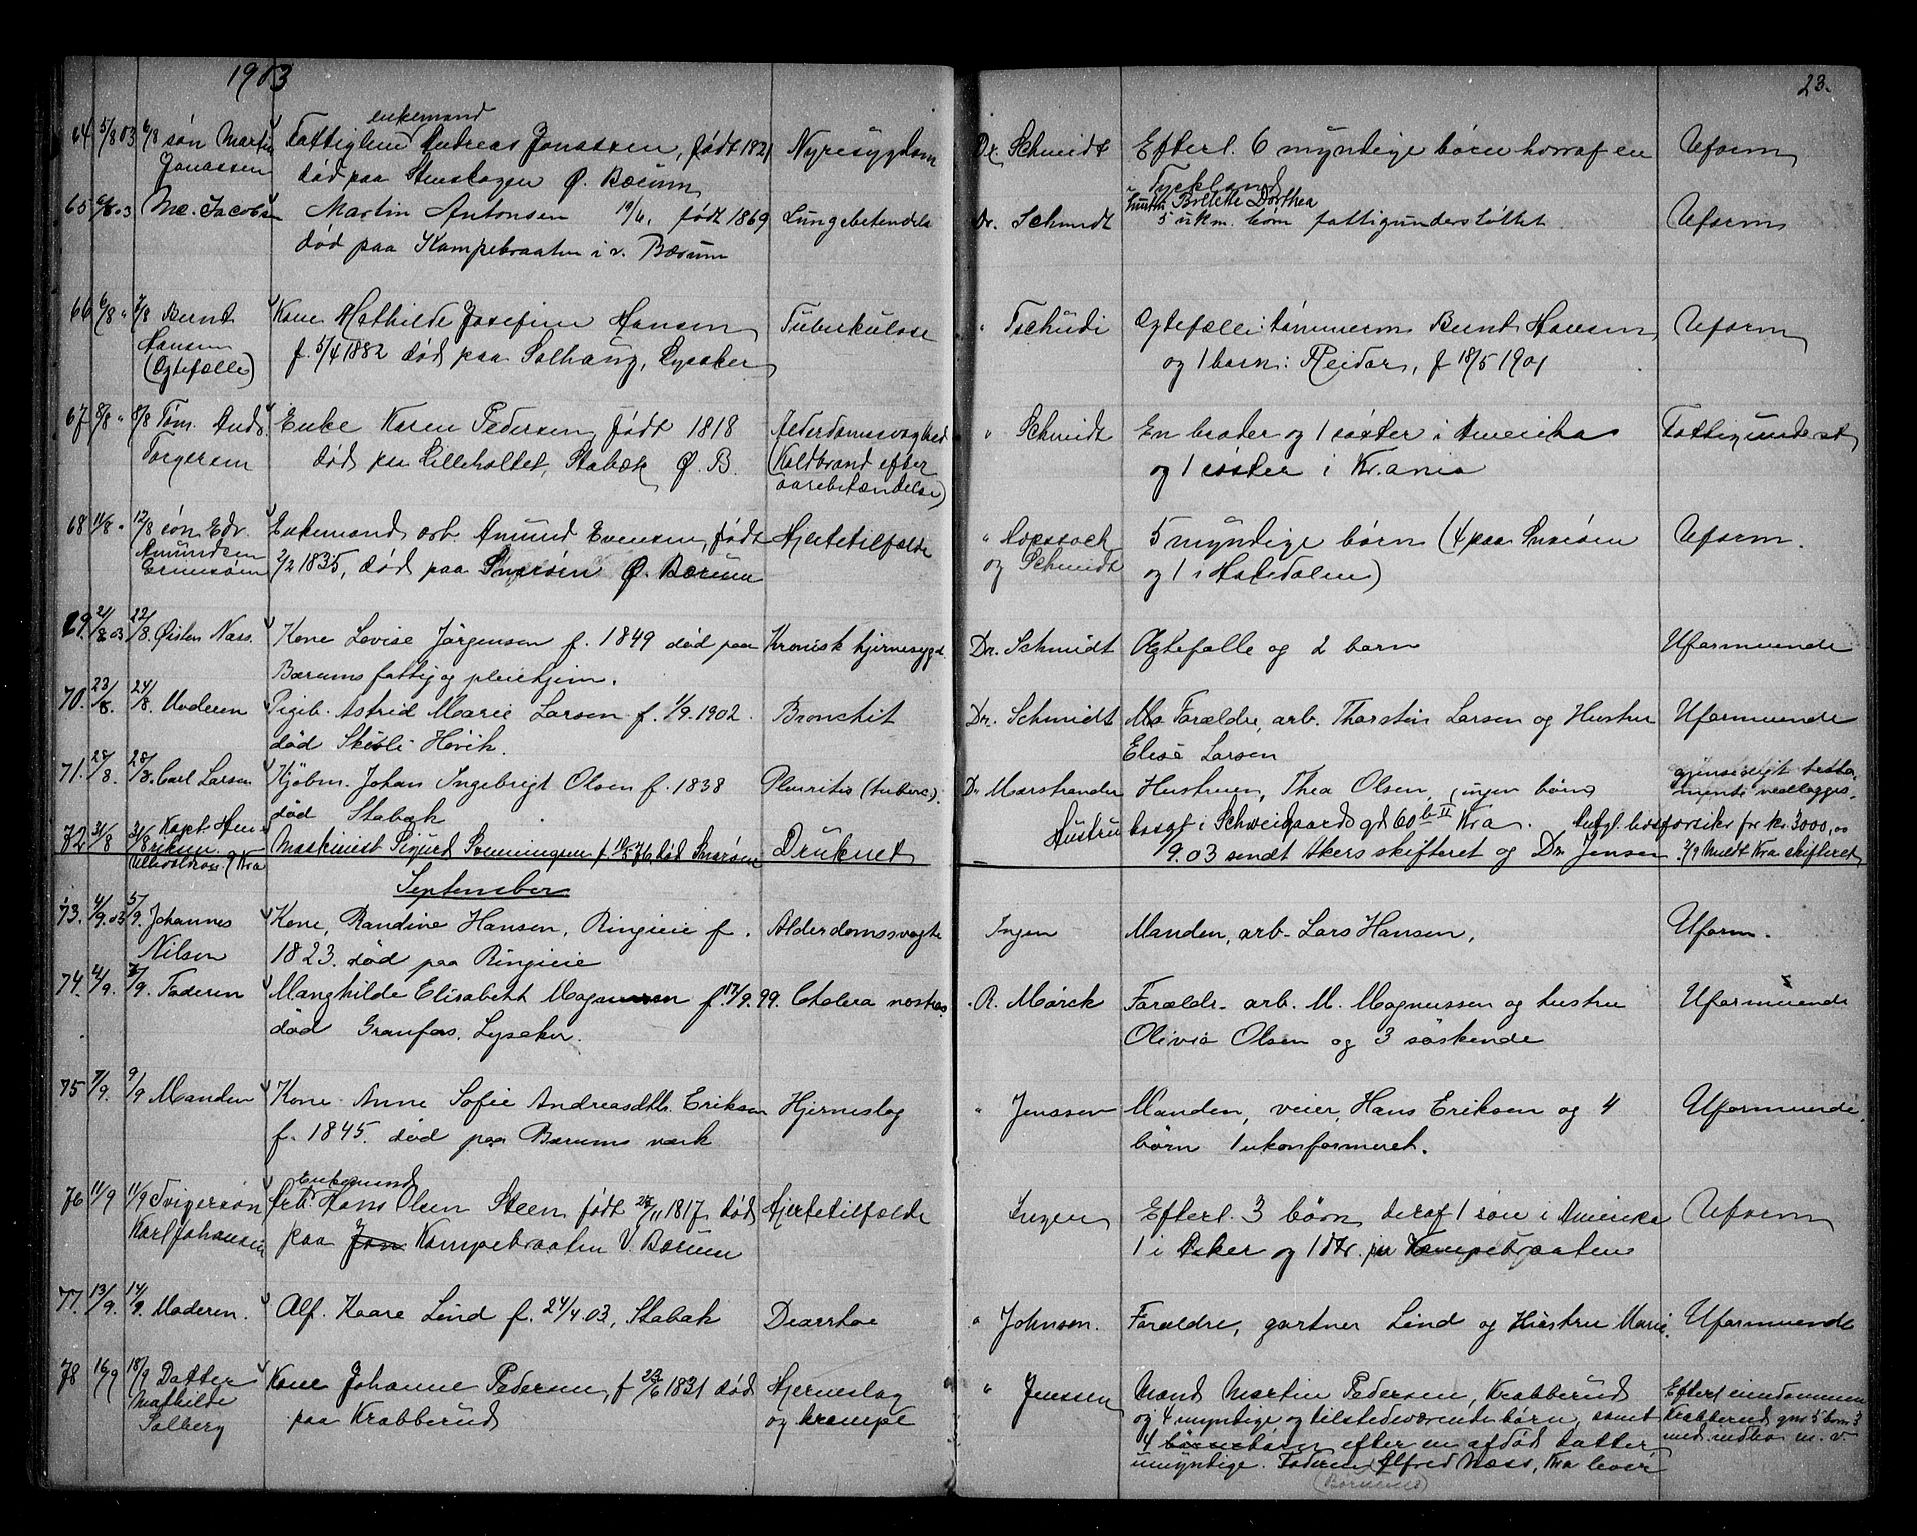 1903
23.
64 5/8 03 6/8 søn Martin Fattiglem enkemand Andreas Jonassen, født 1821 Nyresygdom Dr. Schmidt Efterl. 6 myndige børn hvoraf en Uform
Jonassen død paa Stenskogen Ø. Bærum i Tyskland
65 6/8 03 Mc. Jacobsen Martin Antonsen 19/4 født 1869 Lungebetendelse Dr. Schmidt hustru Bolette Dorthea
5 ukm. born fattigunderstøttet Uform
død paa Kampebraaten i v. Bærum
66 6/8 " 7/8 Bernt Kone Mathilde Josefine Hansen Tuberkulose " Tschudi Egtefælle: tømmerm Bernt Hansen, Uform
Hansen f. 5/4 1882 død paa Solhaug, Lysaker og 1 barn: Reidar, f 18/5 1901
(Egtefælle)
67 8/8 " 8/8 Tøm. Ands. Enke Karen Pedersen, født 1818 Alderdomssvaghed " Schmidt En broder og 1 søster i Amerika Fattigunderst
Torgersen død paa Lilleholtet, Stabæk Ø. B. (Koldbrand efter og 1 søster i Kr.ania
aarebetændelse)
68 11/8 " 12/8 søn Edv. Enkemand, arb. Amund Evensen, født Hjertetilfælde " Hopstock 5 myndige børn (4 paa Snarøen Uform.
Amundsen 2/2 1835, død paa Snarøen Ø. Bærum og Schmidt og 1 i Hakedalen)
69. 21/8 03 22/8. Østen Næss. Kone Lovise Jørgensen f. 1849 død paa Kronisk hjernesygd. Dr. Schmidt Ægtefælle og 2 barn Uformuende
Bærums fattig og pleiehjem.
70. 23/8. 24/8. Moderen Pigeb. Astrid Marie Larsen f. 1/9.1902. Bronchit Dr. Schmidt Forældre, arb. Thorstein Larsen og Hustru Uformuende
død Høvik. Elise Larsen
71. 27/8. 28/8. Carl Larsen Kjøbm. Johan Ingebrigt Olsen f. 1838 Pleuritis (tuberc). Dr Marstrander Hustruen, Thea Olsen, ingen børn gjensidigt testamente vedlægges.
død Stabæk
72 31/8 31/8 Kapt. Henriksen Maskinist Sigurd Svenningsen f 10/5 76 død Snarøen Druknet Hustru bosat i Schweigaardsgd 60 b II Kra. Antgl. livsforsikr for kr. 3000,00
9.03 sendt Akers skifteret og Dr. Jensen. 2/9 Meldt Kra skifteret
September
73. 4/9. 03 5/9. Johannes Kone, Randine Hansen, Ringieie f. Alderdomssvagte Ingen Manden, arb. Lars Hansen, Uform.
Nilsen 1823. død paa Ringieie
74. 4/9. 7/9. Faderen Manghilde Elisabeth Magnussen f. 17/9.99. Cholera nostras. R. Mørck Forældr. arb. M. Magnussen og hustru Uformuende
død Granfos. Lysaker. Olivia Olsen og 3 søskende
75 7/9. 9/9 Manden Kone Anne Sofie Andreasdtr. Eriksen Hjerneslag " Jenssen Manden, veier, Hans Eriksen og 4 Uformuende.
f. 1845. død paa Bærums værk børn 1 ukonformeret.
76 11/9 11/9 Svigersøn Arb. Enkemand Hans Olsen Steen født 28/11 1817, død Hjertetilfælde Ingen Efterl. 3 børn, deraf 1 søn i Amerika Uform
Karl Johansen paa Jon Kampebraaten V. Bærum 1 i Asker og 1 dtr. paa Kampebraaten
77. 13/9. 14/9. Moderen. Alf. Kaare Lind f. 24/4.03, Stabæk Diarrhoe " Johnsen. Forældre, gartner Lind og Hustru Marie. Uformuende
78 16/9 18/9 Datter Kone Johanne Pedersen, f 23/6 1831 død Hjerneslag " Jenssen Mand Martin Pedersen, Krabberud Efterl eiendommen
Mathilde paa Krabberud og krampe og 4 myndige og tilstedeværende børn, samt Krabberud
Solberg 4 børn efter en afdød datter, m. v.
umyndige. Faderen Alfred Næss, Kra lever